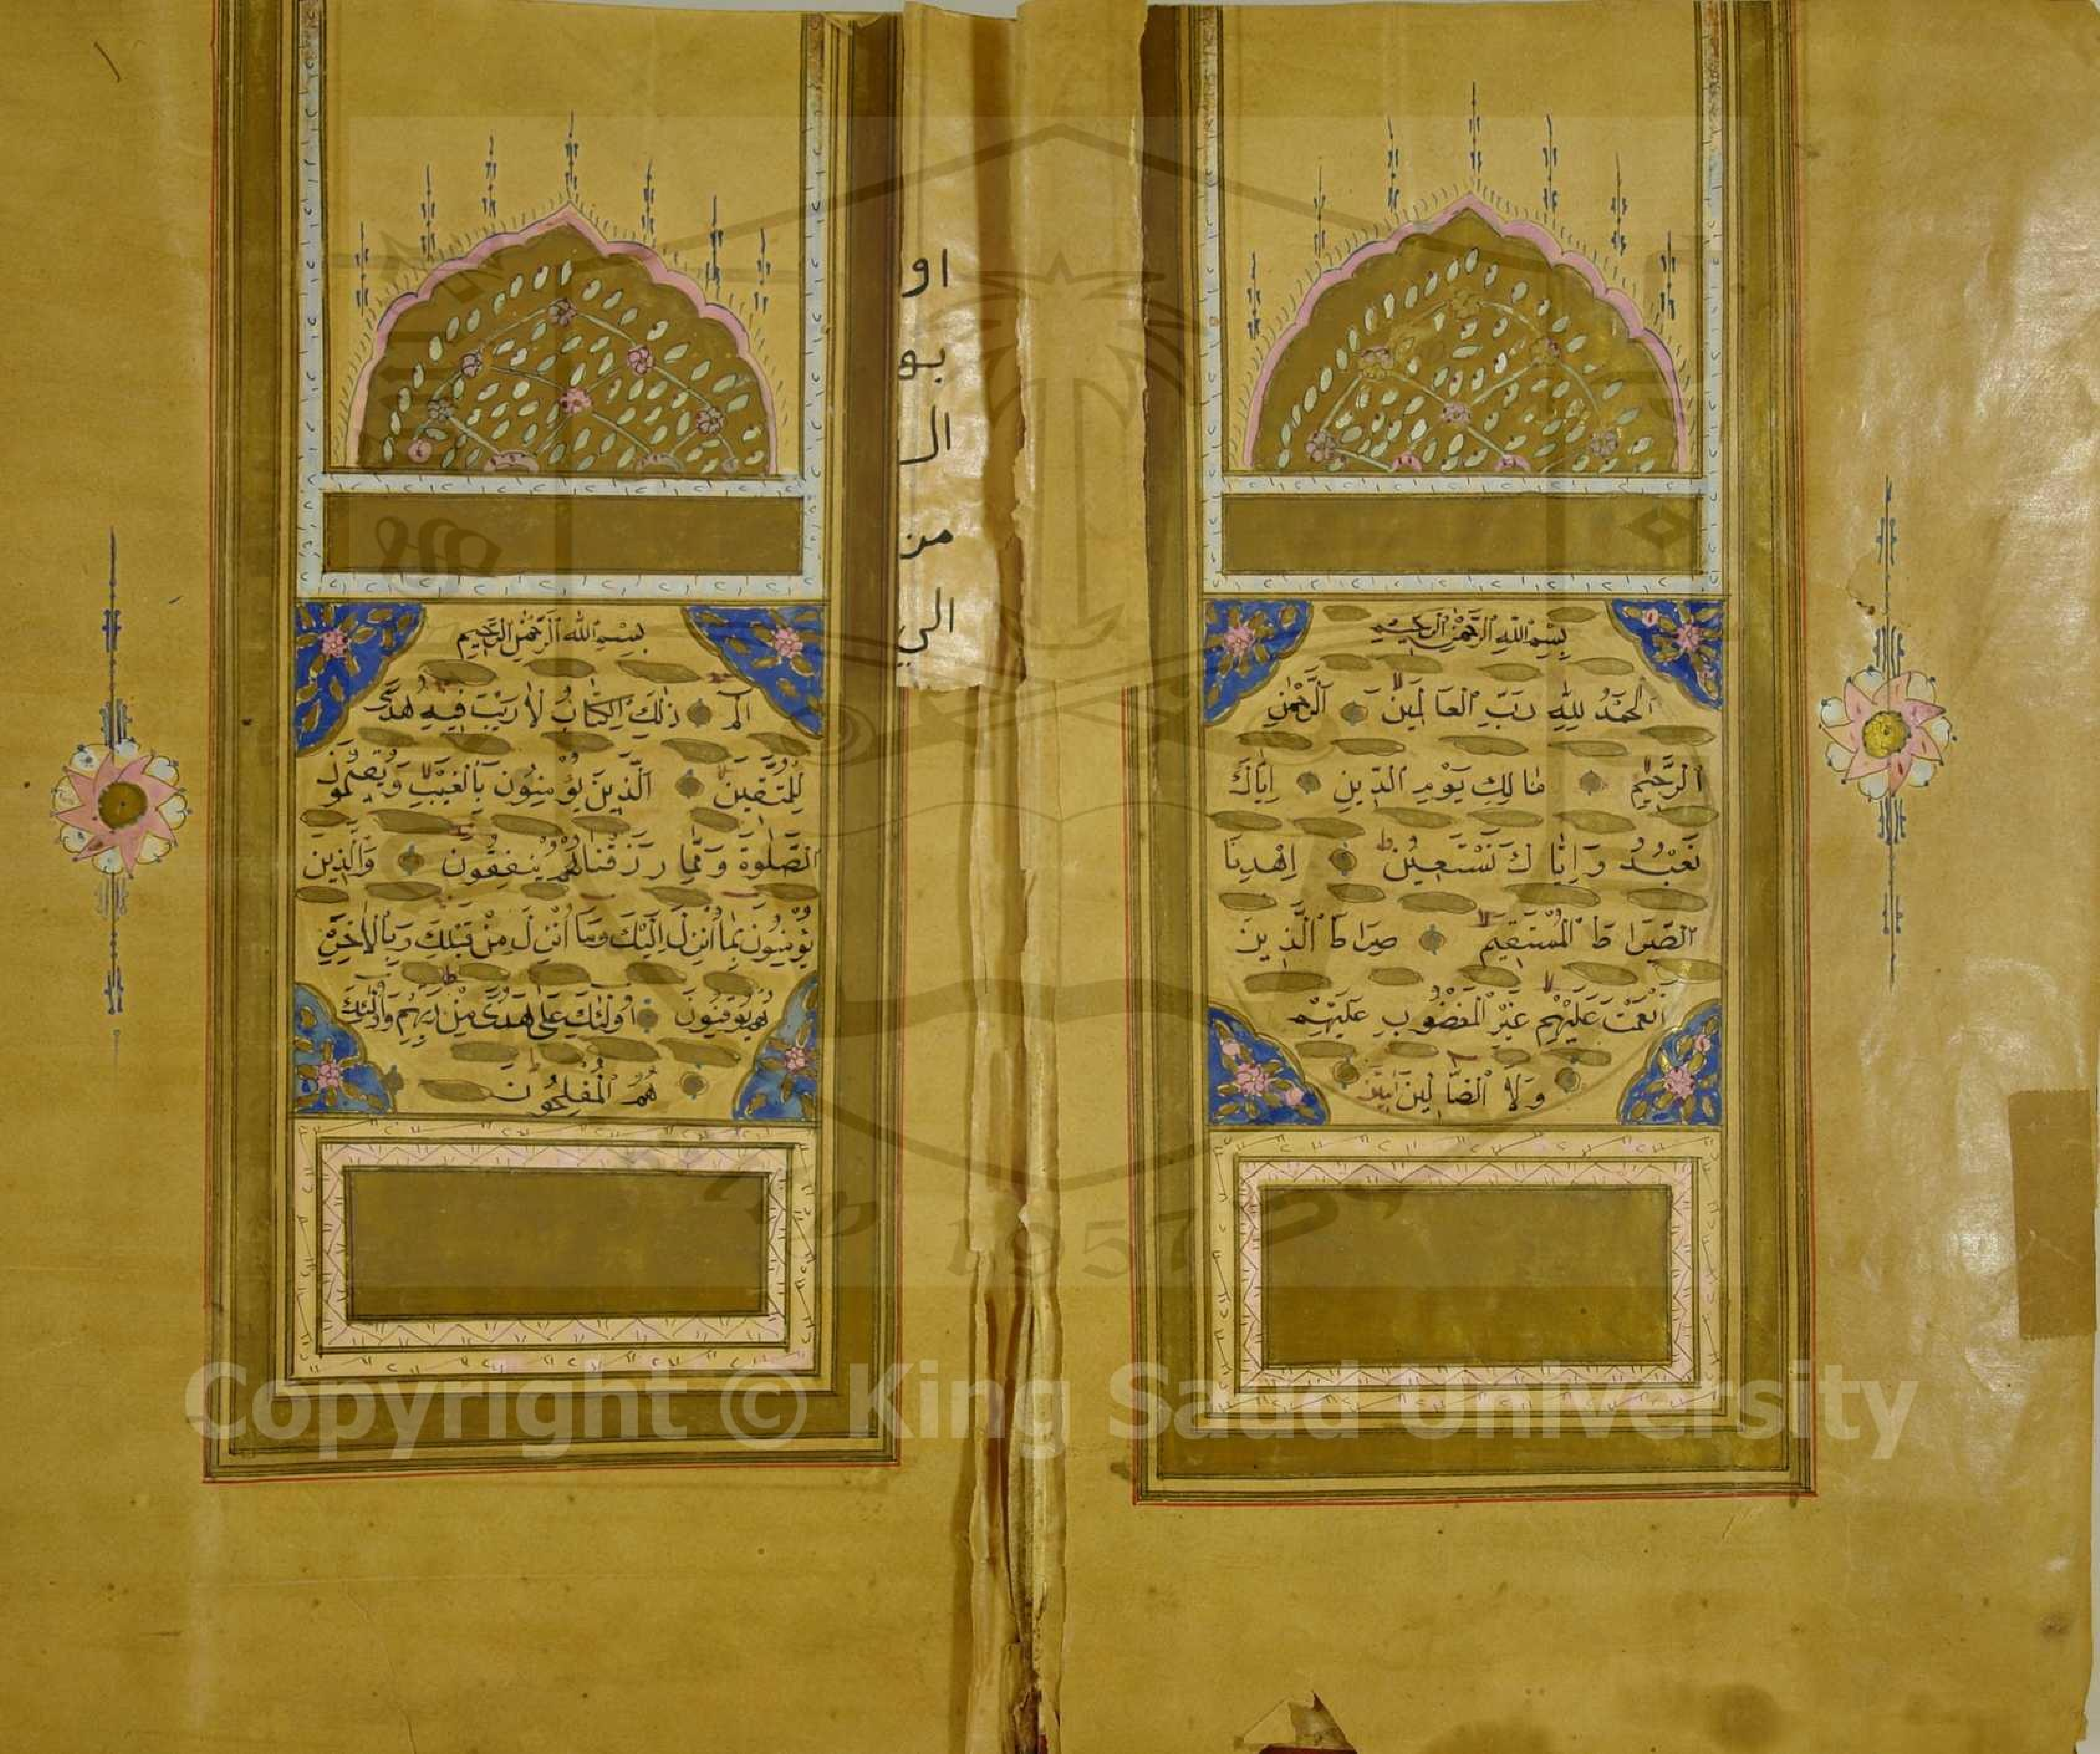 بِسْمِ ٱللَّهِ ٱلرَّحْمٰنِ ٱلرَّحِيمِ
اَلْحَمْدُ لِلّٰهِ رَبِّ الْعَالَمِينَ اَلرَّحْمٰنِ
الرَّحِيمِ مَالِكِ يَوْمِ الدِّينِ اِيَّاكَ
نَعْبُدُ وَاِيَّاكَ نَسْتَعِينُ اِهْدِنَا
الصِّرَاطَ الْمُسْتَقِيمَ صِرَاطَ الَّذِينَ
اَنْعَمْتَ عَلَيْهِمْ غَيْرِ الْمَغْضُوبِ عَلَيْهِمْ
وَلَا الضَّالِّينَ
او
بها
ال
من
الي
بِسْمِ اللّٰهِ الرَّحْمٰنِ الرَّحِيمِ
الٓمٓ ذٰلِكَ الْكِتَابُ لَا رَيْبَ فِيهِ هُدًى
لِلْمُتَّقِينَ اَلَّذِينَ يُؤْمِنُونَ بِالْغَيْبِ وَيُقِيمُونَ
الصَّلٰوةَ وَمِمَّا رَزَقْنَاهُمْ يُنْفِقُونَ وَالَّذِينَ
يُؤْمِنُونَ بِمَا اُنْزِلَ اِلَيْكَ وَمَا اُنْزِلَ مِنْ قَبْلِكَ وَبِالْاٰخِرَةِ
هُمْ يُوقِنُونَ اُولٰئِكَ عَلٰى هُدًى مِنْ رَبِّهِمْ وَاُولٰئِكَ
هُمُ الْمُفْلِحُونَ
1957
Copyright © King Saud University